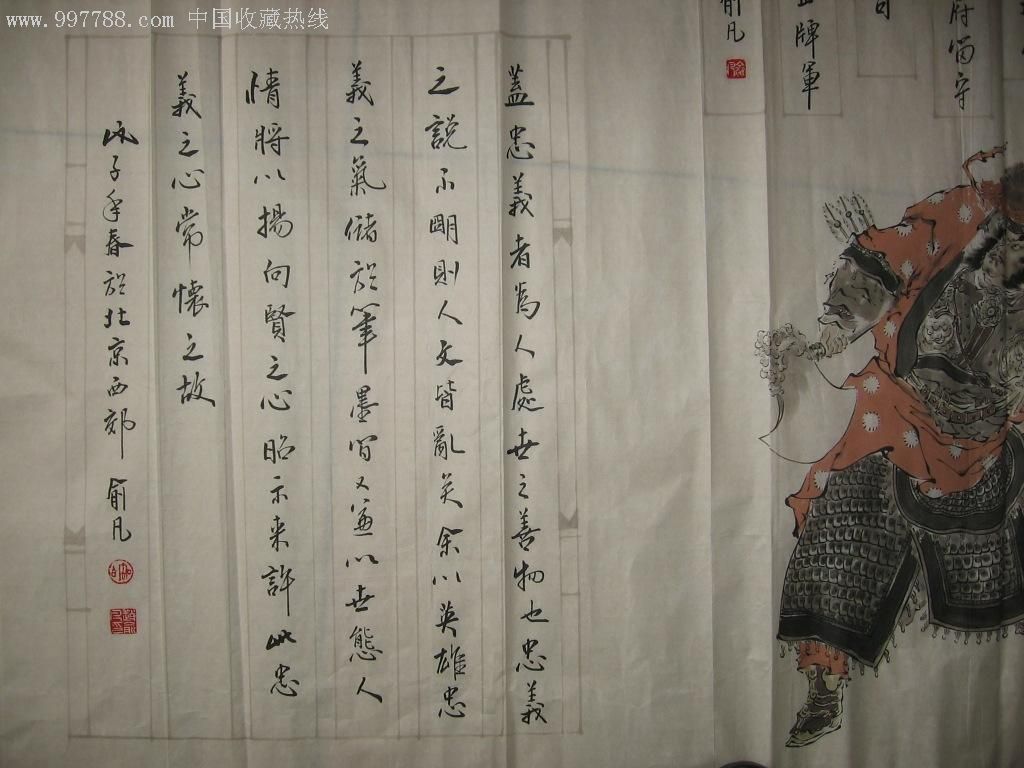 www.997788.com 中国收藏热线
府留守
司
正牌軍
俞凡
蓋忠義者為人處世之善物也忠義
之說不明則人文皆亂矣余以英雄忠
義之氣儲於筆墨間又兼以世態人
情將以揚向賢之心昭示来許此忠
義之心常懷之故
戊子年春於北京西郊 俞凡